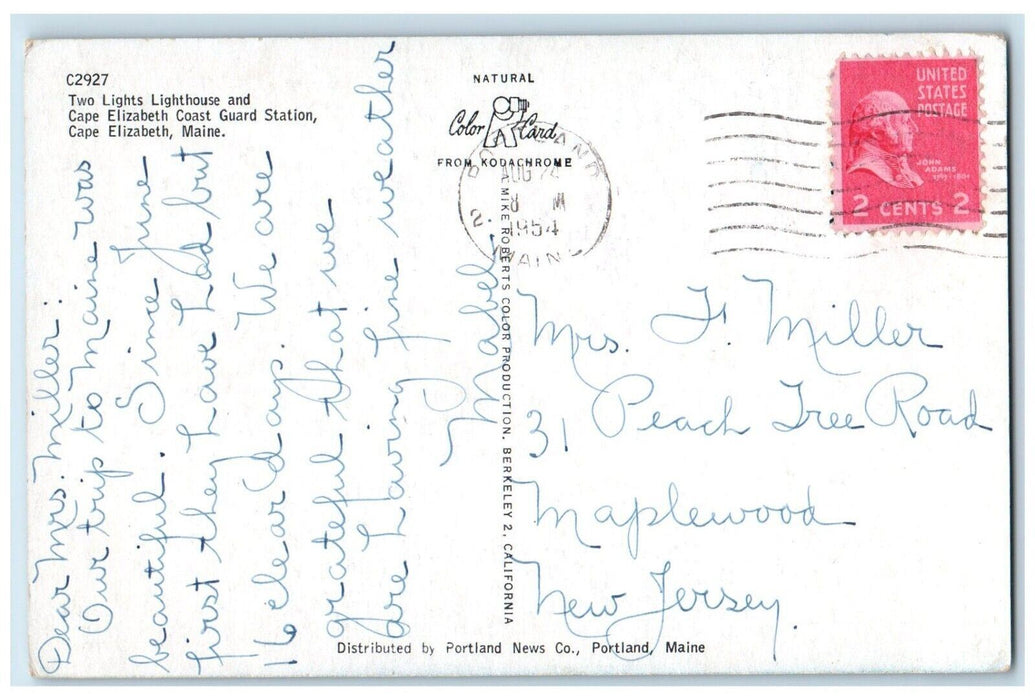 C2927
Two Lights Lighthouse and
Cape Elizabeth Coast Guard Station,
Cape Elizabeth, Maine.
Dear Mrs. Miller:
Our trip to Maine was
beautiful. Since June
first they have had but
16 clear days. We are
grateful that we
are having fine weather
Mabel
NATURAL
Color Card
FROM KODACHROME
A MIKE ROBERTS COLOR PRODUCTION, BERKELEY 2, CALIFORNIA
PORTLAND
AUG 24
8 M
2.
1954
MAINE
UNITED
STATES
POSTAGE
JOHN
ADAMS
1797-1801
2 CENTS 2
Mrs. F. Miller
31 Peach Tree Road
Maplewood
New Jersey.
Distributed by Portland News Co., Portland, Maine